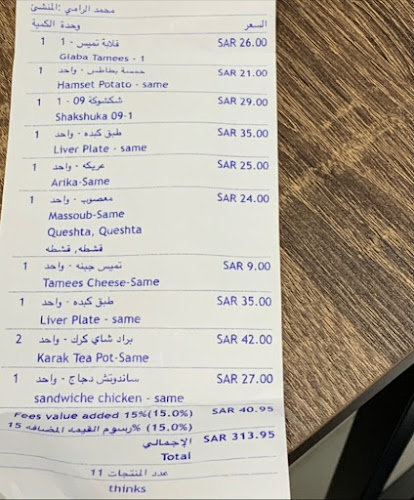 محمد الرامي :المنشئ
السعر وحدة الكمية
1 قلابة تميس - 1 SAR 26.00
Glaba Tamees - 1
1 حمسة بطاطس - واحد SAR 21.00
Hamset Potato - same
1 شكشوكة 09 - 1 SAR 29.00
Shakshuka 09-1
1 طبق كبده - واحد SAR 35.00
Liver Plate - same
1 عريكه - واحد SAR 25.00
Arika-Same
1 معصوب - واحد SAR 24.00
Massoub-Same
Queshta, Queshta
قشطه, قشطه
1 تميس جبنه - واحد SAR 9.00
Tamees Cheese-Same
1 طبق كبده - واحد SAR 35.00
Liver Plate - same
2 براد شاي كرك - واحد SAR 42.00
Karak Tea Pot-Same
1 ساندوتش دجاج - واحد SAR 27.00
sandwiche chicken - same
Fees value added 15%(15.0%) SAR 40.95
رسوم القيمه المضافه 15% (15.0%)
الإجمالي SAR 313.95
Total
عدد المنتجات 11
thinks